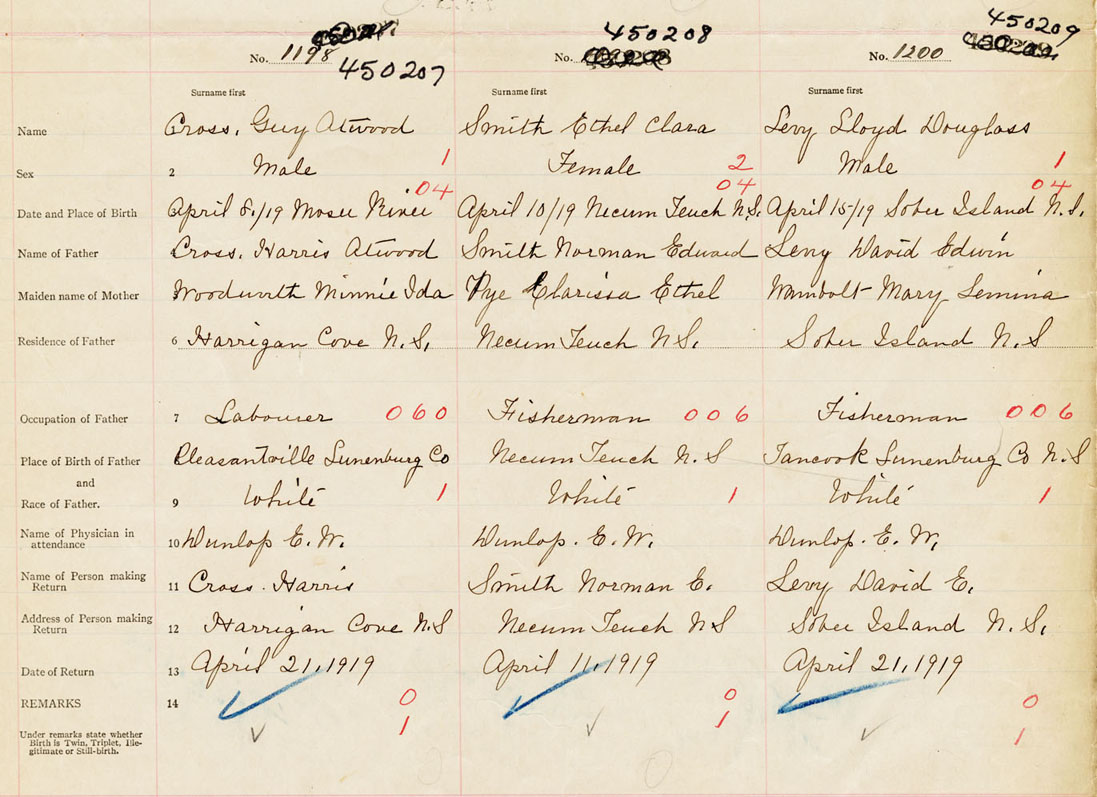 450208 450209
No. 1198 No. No. 1200
450207
Surname first Surname first Surname first
Name Cross, Guy Atwood Smith Ethel Clara Levy Lloyd Douglass
Sex 2 Male 1 Female 2 Male 1
04 04 04
Date and Place of Birth April 8,/19 Moser River April 10/19 Necum Teuch N.S. April 15/19 Sober Island N.S.
Name of Father Cross, Harris Atwood Smith Norman Edward Levy David Edwin
Maiden name of Mother Woodworth Minnie Ida Pye Clarissa Ethel Wambolt Mary Lemina
Residence of Father 6 Harrigan Cove N.S. Necum Teuch N.S. Sober Island N.S
Occupation of Father 7 Labourer 060 Fisherman 006 Fisherman 006
Place of Birth of Father Pleasantville Lunenburg Co Necum Teuch N.S Tancook Lunenburg Co N.S
and
Race of Father. 9 White 1 White 1 White 1
Name of Physician in
attendance 10 Dunlop E.W. Dunlop. E.W. Dunlop. E.W.
Name of Person making
Return 11 Cross. Harris Smith Norman E. Levy David E.
Address of Person making
Return 12 Harrigan Cove N.S Necum Teuch N S Sober Island N.S.
Date of Return 13 April 21, 1919 April 11, 1919 April 21, 1919
REMARKS 14 0 0 0
1 1 1
Under remarks state whether
Birth is Twin, Triplet, Ille-
gitimate or Still-birth.